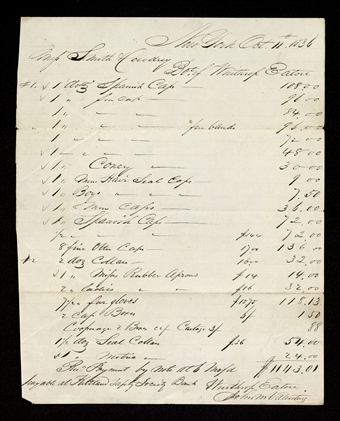 New York Oct. 11th 1836
Mess Smith
Bot of Winthrop Eaton
#1. √ 1 doz Spanish Caps — 108.00
√ 1 " fur caps — 96.00
1 " " — 84.00
1 " " — " fur bands 96.00
1 " " — 72.00
√ 1 " " — 48.00
√ 1 " Coney — 30.00
√ 1 " Hair Seal Caps 9.00
√ 1 " Boys " — 7.50
√ 1 " Navy Caps — 36.00
√ 1 " Spanish Caps — 72.00
72.00
8 fine Otter Caps — 17.00 136.00
#2 2 doz Collars — 16.00 32.00
√ 1 " Misses Rubber Aprons $14 14.00
2 " Ladies " $16 32.00
fur gloves 118.13
2 Cap Boxes 6/ 1.50
Cooperage 2 Boxes 88
1½ doz Seal Collars $36 54.00
24.00
Payment by Note at 6 Mos $1143.01
payable at Bank Winthrop Eaton
John M